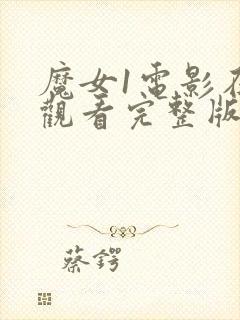 魔女1電影在
觀看完整版
蔡鍔